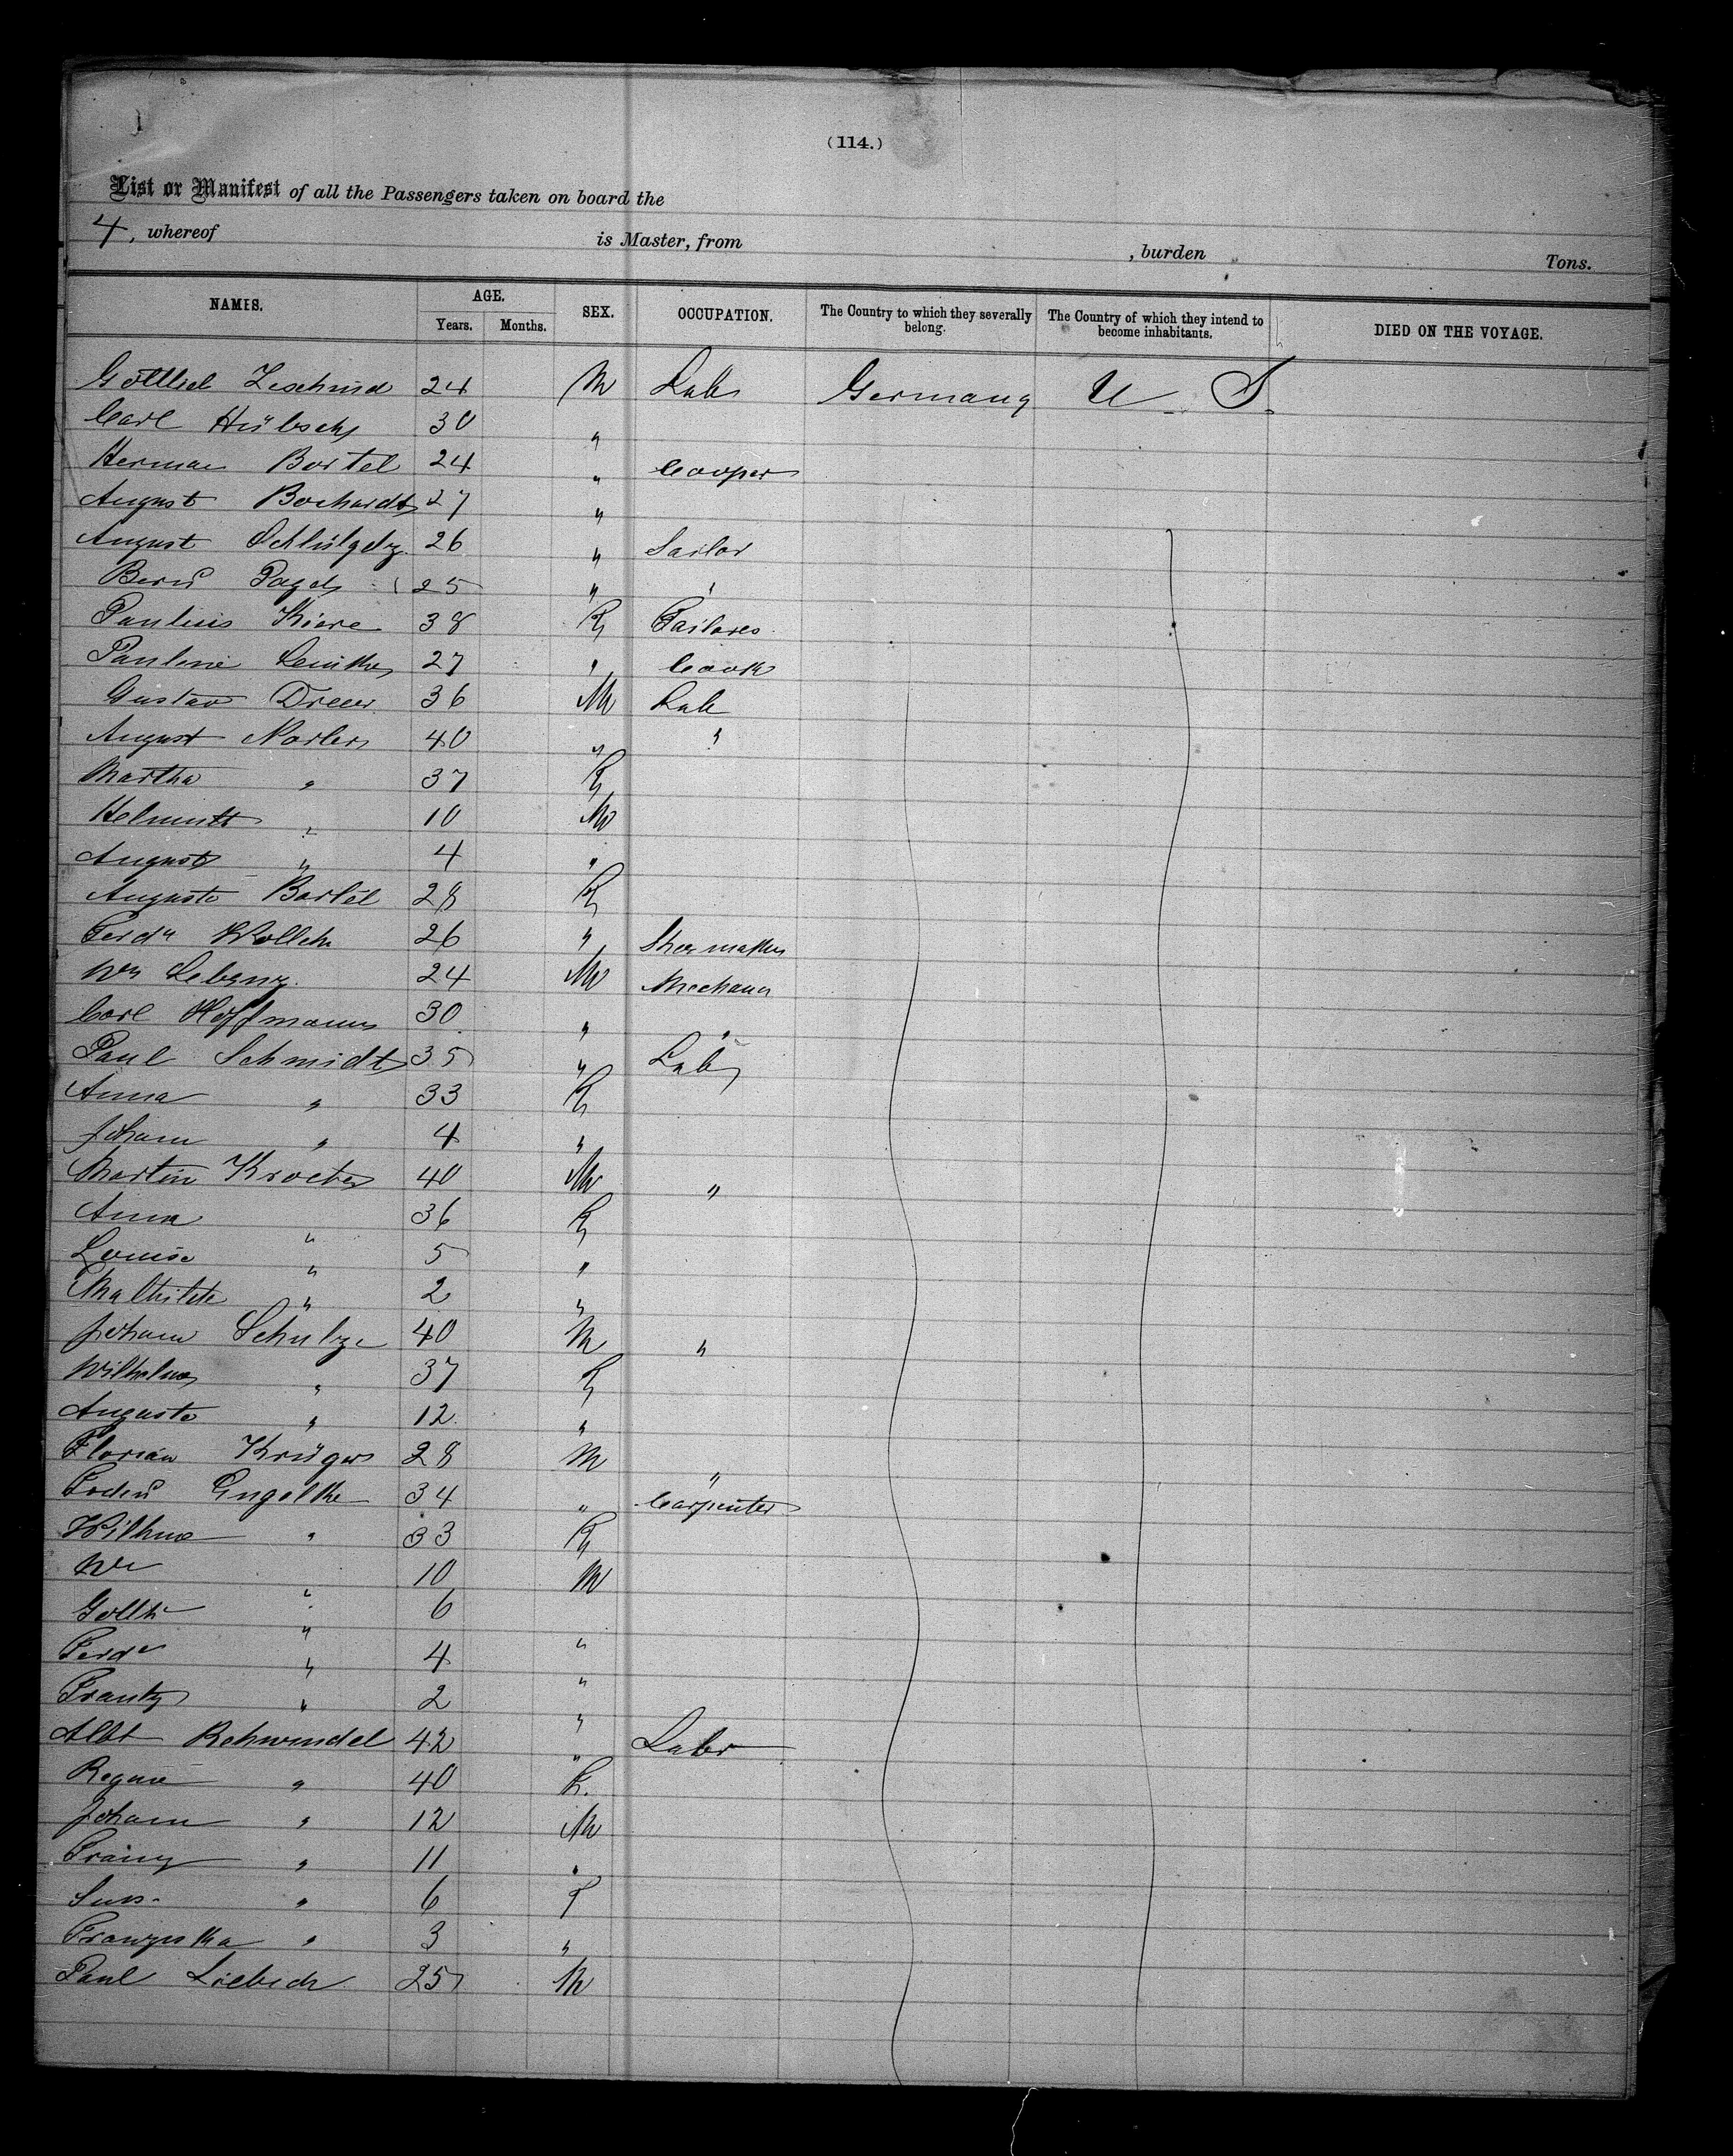 (114.)
List or Manifest of all the Passengers taken on board the
4, whereof is Master, from , burden Tons.
NAMES. AGE. SEX. OCCUPATION. The Country to which they severally belong. The Country of which they intend to become inhabitants. DIED ON THE VOYAGE.
Years. Months.
Gottlieb 24 M Lab Germany U. S.
Carl Hübsch 30 "
Herman Bartel 24 " Cooper
August Bochardt 27 "
August 26 " Sailor
Bernd Pagels 25 " "
38 F
Pauline 27 " Cook
Gustav 36 M Lab
August 40 " "
Martha " 37 F
Helmuth " 10 M
August " 4 "
Auguste Bartel 28 F
Ferdn 26 " Shoemaker
Wm 24 M
Carl Hoffmann 30 " "
Paul Schmidt 35 " Lab
Anna " 33 F
Johann " 4 "
Martin Kroeter 40 M "
Anna " 36 F
Louise " 5 "
Mathilde " 2 "
Johann Schulze 40 M "
Wilhelma " 37 F
Auguste " 12 "
Florian Krüger 28 M "
Engelke 34 " Carpenter
" 33 F
Wm " 10 M
" 6 "
Ferdn " 4 "
Frantz " 2 "
Albt Rehwendel 42 " Labr
Regina " 40 F.
Johann " 12 M
Franz " 11 "
" 6 F
Franziska " 3 "
Paul Liebich 25 M